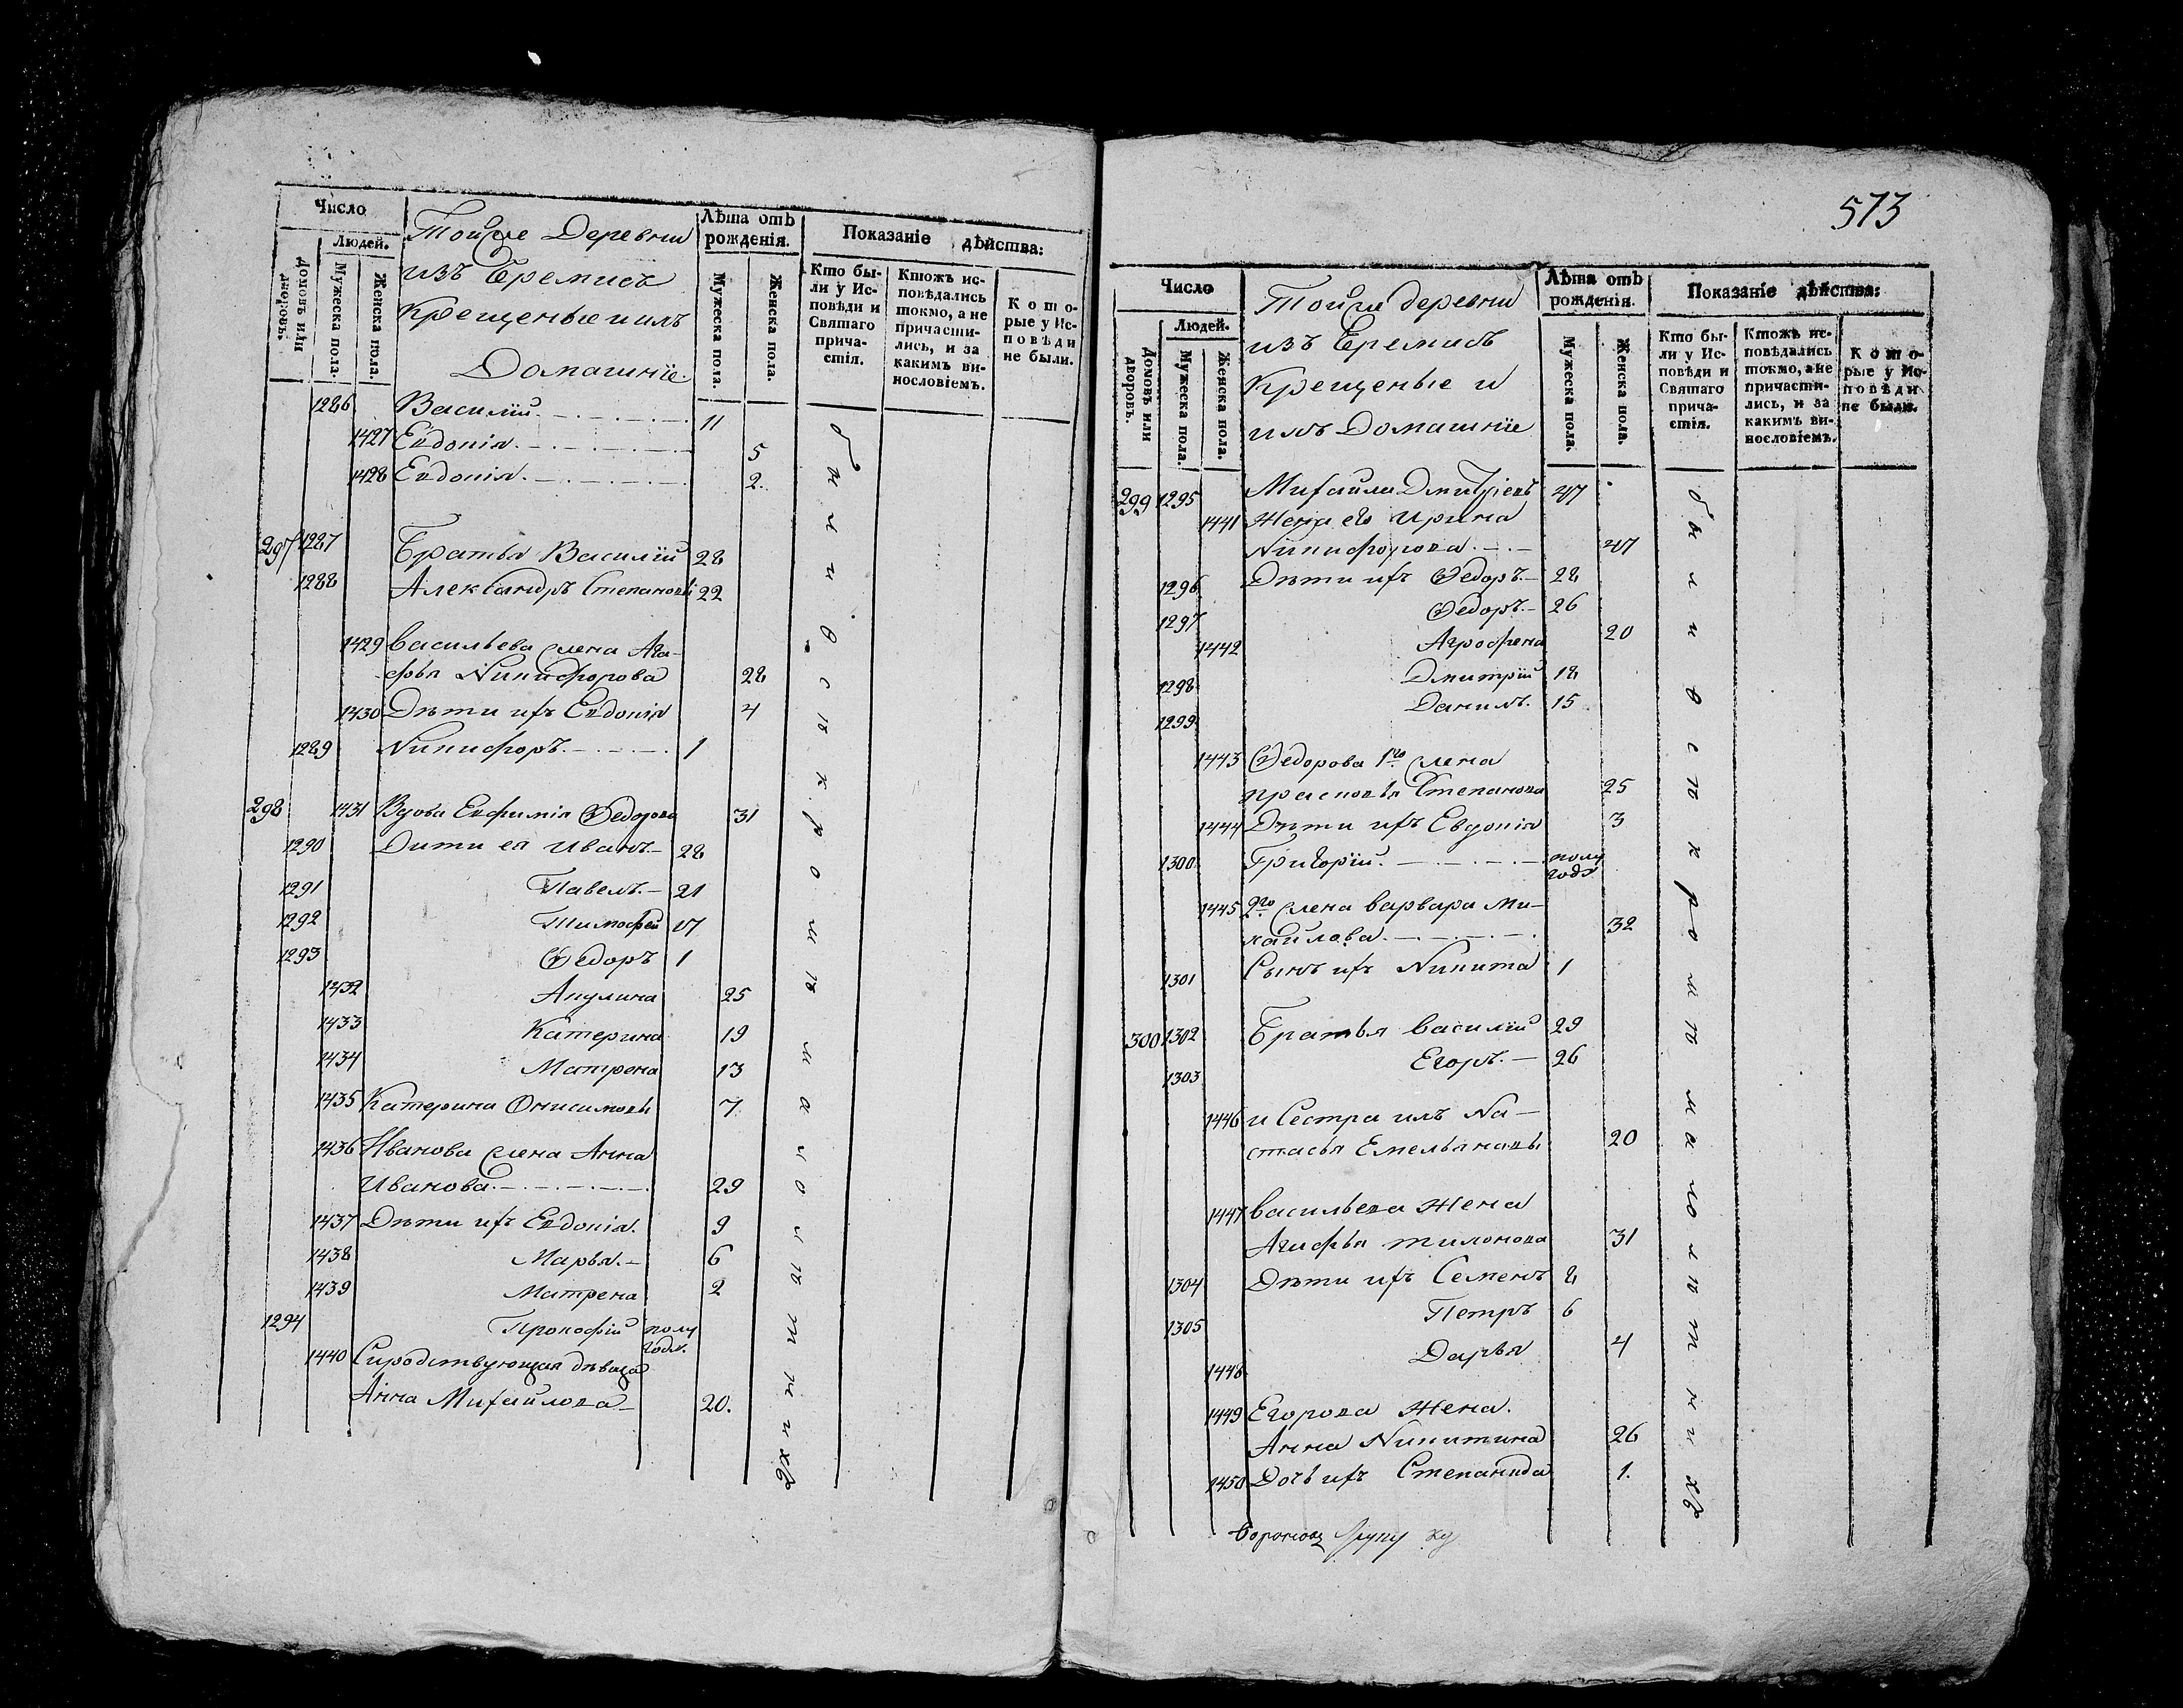 Число
Людей.
Домовъ или дворовъ.
Мужеска пола.
Женска пола.
Тойже Деревни
изъ Черемисъ
Крещеные и ихъ
Домашніе.
Лѣта отъ рожденія.
Мужеска пола.
Женска пола.
Показаніе дѣйства:
Кто бы-
ли у Ис-
повѣди и
Святаго
прича-
стія.
Ктожъ ис-
повѣдались
токмо, а не
причасти-
лись, и за
какимъ ви-
нословіемъ.
Кото-
рые у Ис-
повѣди
не были.
1286 Василій. 11
1427 Евдокія. 5
1428 Евдокія. 2.
297 1287 Братья Василій 28
1288 Александръ Степановы 22
1429 Васильева жена Ага-
фья Никифорова 28
1430 Дѣти ихъ Евдокія 4
1289 Никифоръ. 1
298 1431 Вдова Евфимія Федорова 31
1290 Дити ея Иванъ. 28
1291 Павелъ. 21
1292 Тимофей 17
1293 Федоръ 1
1432 Акулина 25
1433 Катерина 19
1434 Матрена 13
1435 Катерина Онисимовы 7
1436 Иванова жена Анна
Иванова. 29
1437 Дѣти ихъ Евдокія. 9
1438 Марья. 6
1439 Матрена 2
1294 Прокофій полу
годъ.
1440 Сиродствующая дѣвица
Анна Михайлова 20.
513
Число
Людей.
Домовъ или дворовъ.
Мужеска пола.
Женска пола.
Тойже деревни
изъ Черемисъ
Крещеные и
ихъ Домашніе
Лѣта отъ рожденія.
Мужеска пола.
Женска пола.
Показаніе дѣйства:
Кто бы-
ли у Ис-
повѣди и
Святаго
прича-
стія.
Ктожъ ис-
повѣдались
токмо, а не
причасти-
лись, и за
какимъ ви-
нословіемъ.
Кото-
рые у Ис-
повѣди
не были.
299 1295 Михайла Дмитріевъ 47
1441 Жена его Ирина
Никифорова. 47
1296 Дѣти ихъ Федоръ. 28
1297 Федоръ. 26
1442 Агрофена 20
1298 Дмитрій 18
1299 Данилъ. 15
1443 Федорова 1го жена
Прасковья Степанова 25
1444 Дѣти ихъ Евдокія 3
1300 Григорій. полу
годъ
1445 2го жена Варвара Ми-
хайлова. 32
1301 Сынъ ихъ Никита 1
300 1302 Братья Василій 29
1303 Егоръ. 26
1446 и Сестра ихъ На-
стасья Емельяновы 20
1447 Васильева Жена
Агафья Тихонова 31
1304 Дѣти ихъ Семенъ 8
1305 Петръ 6
1448 Дарья 4
1449 Егорова Жена.
Анна Никитина 26
1450 Дочь ихъ Степанида 1.